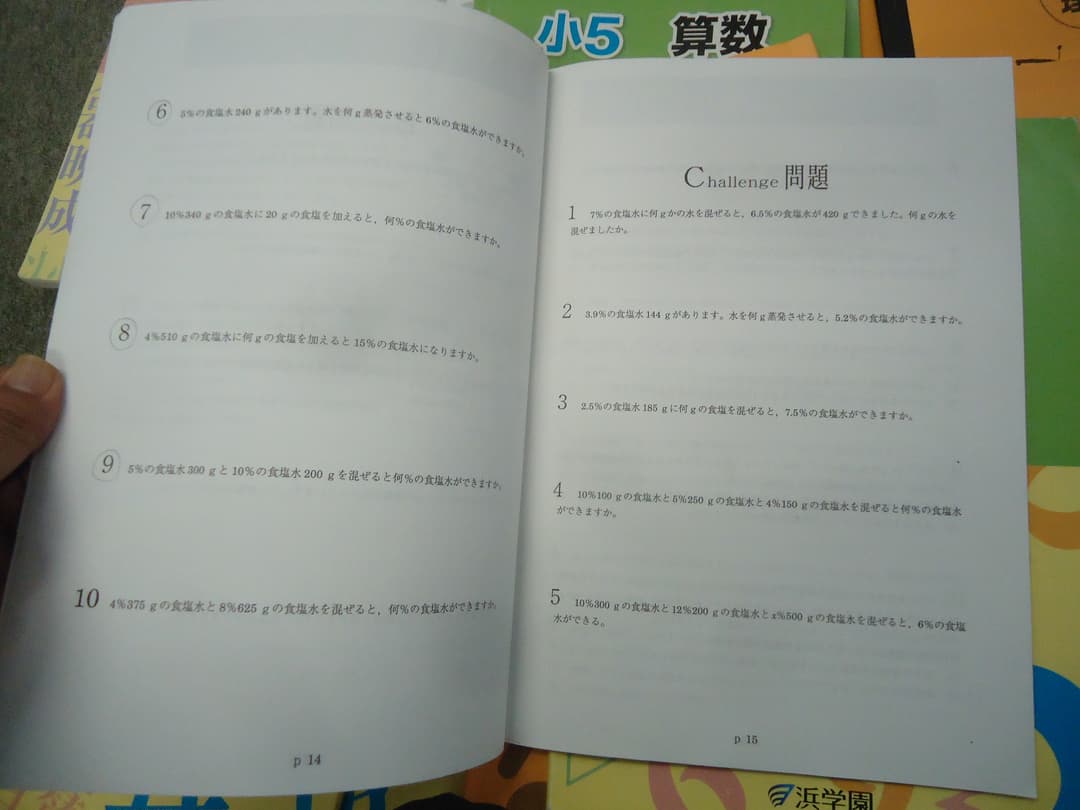 小5 算数
成
6 5%の食塩水240gがあります。水を何g蒸発させると6%の食塩水ができますか。
7 10%340gの食塩水に20gの食塩を加えると,何%の食塩水ができますか。
8 4%510gの食塩水に何gの食塩を加えると15%の食塩水になりますか。
9 5%の食塩水300gと10%の食塩水200gを混ぜると何%の食塩水ができますか。
10 4%375gの食塩水と8%625gの食塩水を混ぜると,何%の食塩水ができますか。
p 14
Challenge 問題
1 7%の食塩水に何gかの水を混ぜると,6.5%の食塩水が420gできました。何gの水を
混ぜましたか。
2 3.9%の食塩水144gがあります。水を何g蒸発させると,5.2%の食塩水ができますか。
3 2.5%の食塩水185gに何gの食塩を混ぜると,7.5%の食塩水ができますか。
4 10%100gの食塩水と5%250gの食塩水と4%150gの食塩水を混ぜると何%の食塩水
ができますか。
5 10%300gの食塩水と12%200gの食塩水とx%500gの食塩水を混ぜると,6%の食塩
水ができる。
p 15
浜学園